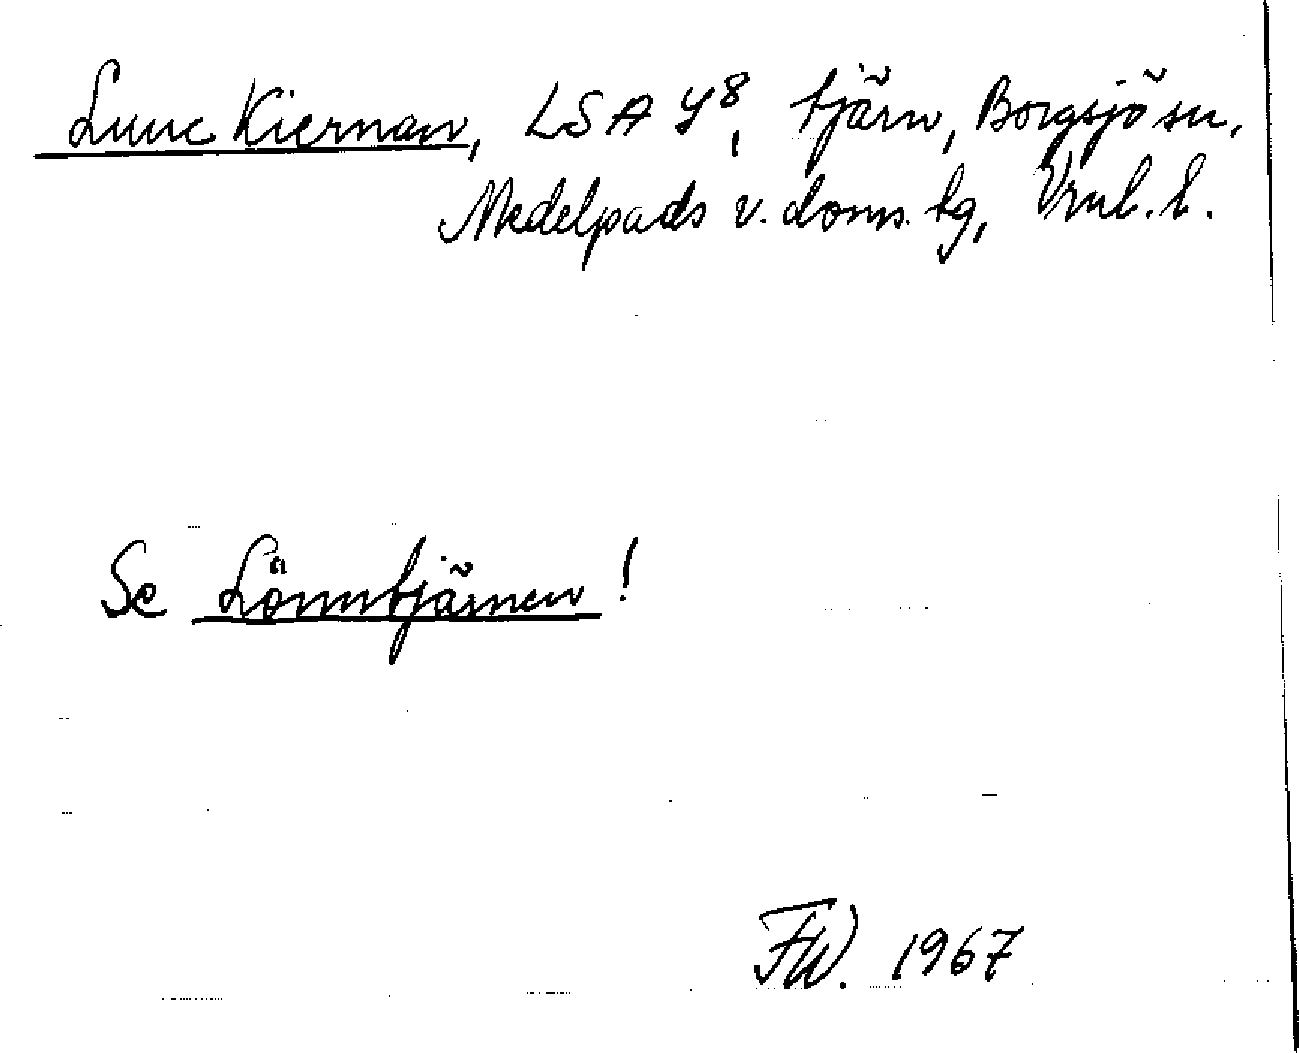 Lunc Kiernan, LSA Y8, tjärn, Borgsjö sn,
Medelpads v. doms. tg, Vrnl. l.
Se Lönntjärnen!
FW. 1967